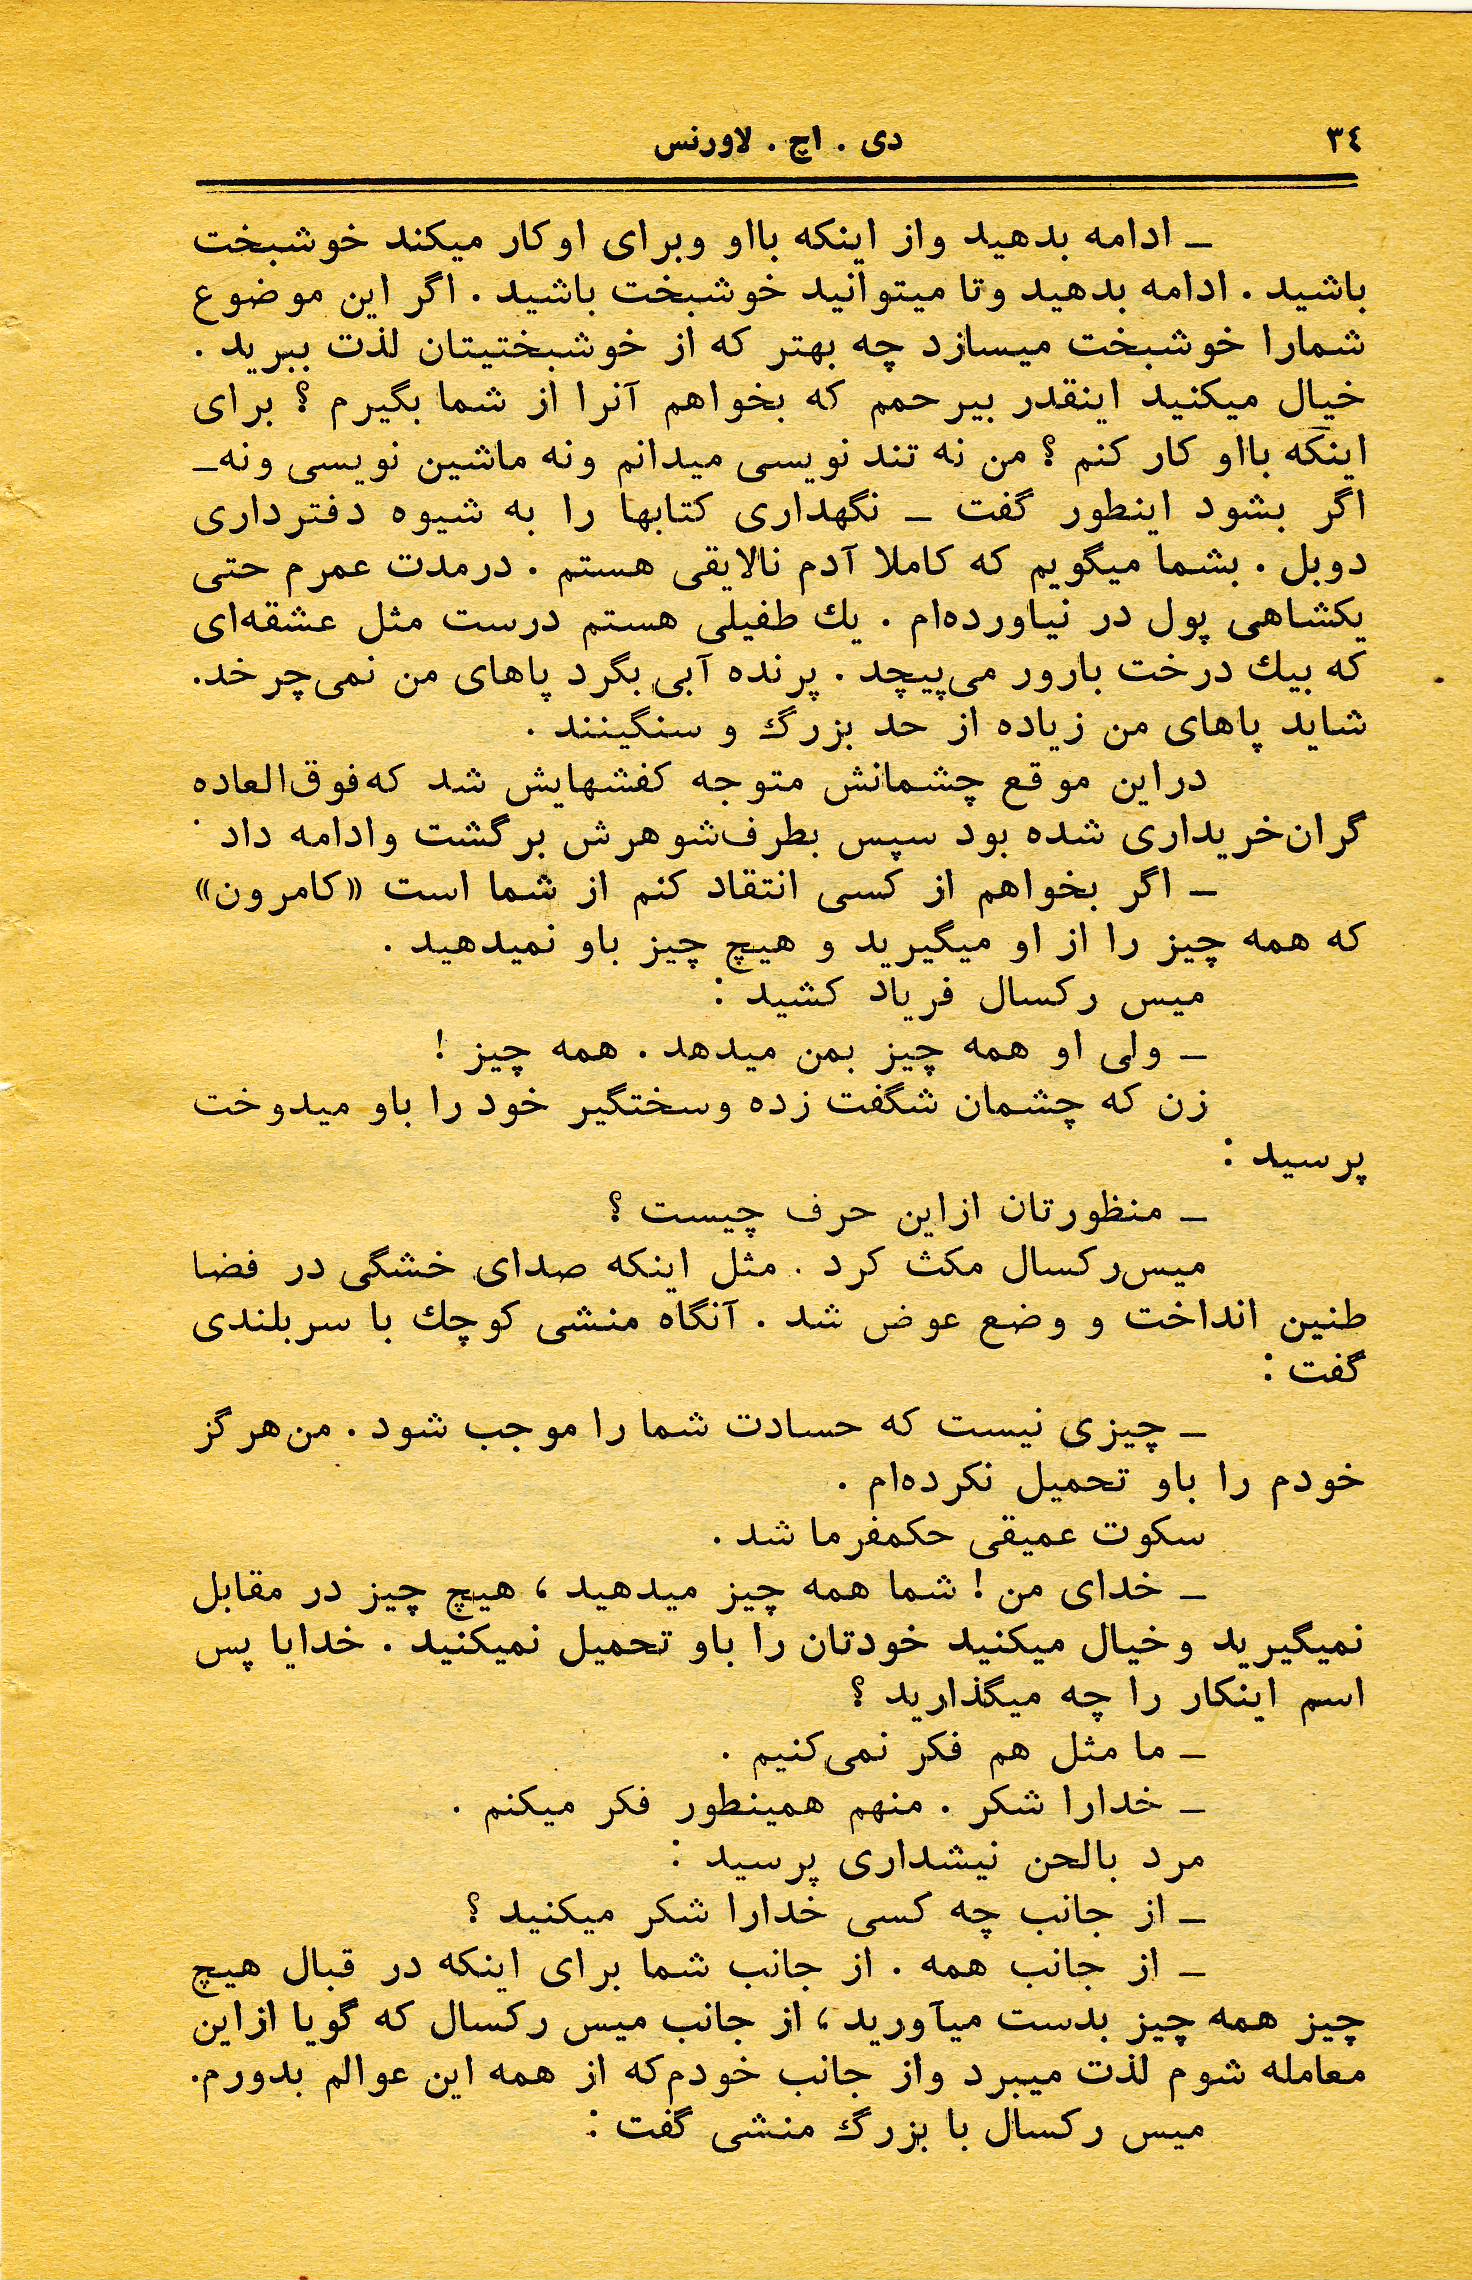 ٣٤
دی . اچ . لاورنس
ـ ادامه بدهید واز اینکه بااو وبرای اوکار میکند خوشبخت
باشید . ادامه بدهید وتا میتوانید خوشبخت باشید . اگر این موضوع
شمارا خوشبخت میسازد چه بهتر که از خوشبختیتان لذت ببرید .
خیال میکنید اینقدر بیرحمم که بخواهم آنرا از شما بگیرم ؟ برای
اینکه بااو کار کنم ؟ من نه تند نویسی میدانم ونه ماشین نویسی ونه ـ
اگر بشود اینطور گفت ـ نگهداری کتابها را به شیوه دفترداری
دوبل . بشما میگویم که کاملا آدم نالایقی هستم . درمدت عمرم حتی
یکشاهی پول در نیاورده‌ام . یك طفیلی هستم درست مثل عشقه‌ای
که بیك درخت بارور می‌پیچد . پرنده آبی بگرد پاهای من نمی‌چرخد.
شاید پاهای من زیاده از حد بزرگ و سنگینند .
دراین موقع چشمانش متوجه کفشهایش شد که فوق‌العاده
گران‌خریداری شده بود سپس بطرف‌شوهرش برگشت وادامه داد .
ـ اگر بخواهم از کسی انتقاد کنم از شما است «کامرون»
که همه چیز را از او میگیرید و هیچ چیز باو نمیدهید .
میس رکسال فریاد کشید :
ـ ولی او همه چیز بمن میدهد . همه چیز !
زن که چشمان شگفت زده وسختگیر خود را باو میدوخت
پرسید :
ـ منظورتان ازاین حرف چیست ؟
میس‌رکسال مکث کرد . مثل اینکه صدای خشگی در فضا
طنین انداخت و وضع عوض شد . آنگاه منشی کوچك با سربلندی
گفت :
ـ چیزی نیست که حسادت شما را موجب شود . من‌هرگز
خودم را باو تحمیل نکرده‌ام .
سکوت عمیقی حکمفرما شد .
ـ خدای من ! شما همه چیز میدهید ، هیچ چیز در مقابل
نمیگیرید وخیال میکنید خودتان را باو تحمیل نمیکنید . خدایا پس
اسم اینکار را چه میگذارید ؟
ـ ما مثل هم فکر نمی‌کنیم .
ـ خدارا شکر . منهم همینطور فکر میکنم .
مرد بالحن نیشداری پرسید :
ـ از جانب چه کسی خدارا شکر میکنید ؟
ـ از جانب همه . از جانب شما برای اینکه در قبال هیچ
چیز همه چیز بدست میآورید ، از جانب میس رکسال که گویا ازاین
معامله شوم لذت میبرد واز جانب خودم‌که از همه این عوالم بدورم.
میس رکسال با بزرگ منشی گفت :